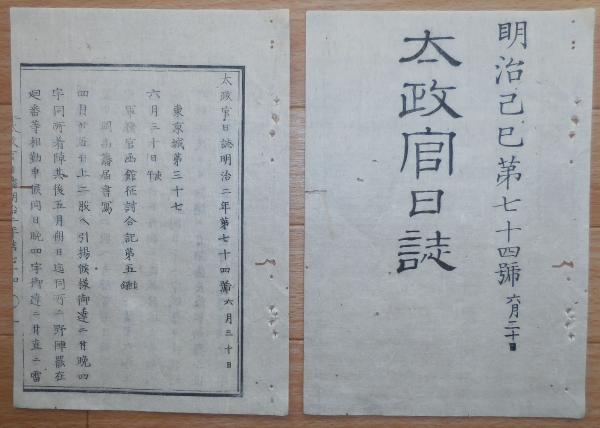 明治己巳第七十四號 六月二十日
太政官日誌
太政官日誌明治二年第七十四號 六月三十日
東京城第三十七
六月三十日
軍務官函館征討合記第五
藩届書寫
四月廿五日上二股ヘ引揚候様御達ニ付晩四
字同所着陣其後五月朔日迄同所ニ野陣罷在
廻番等相勤申候同日晩四字御達ニ付直ニ雷